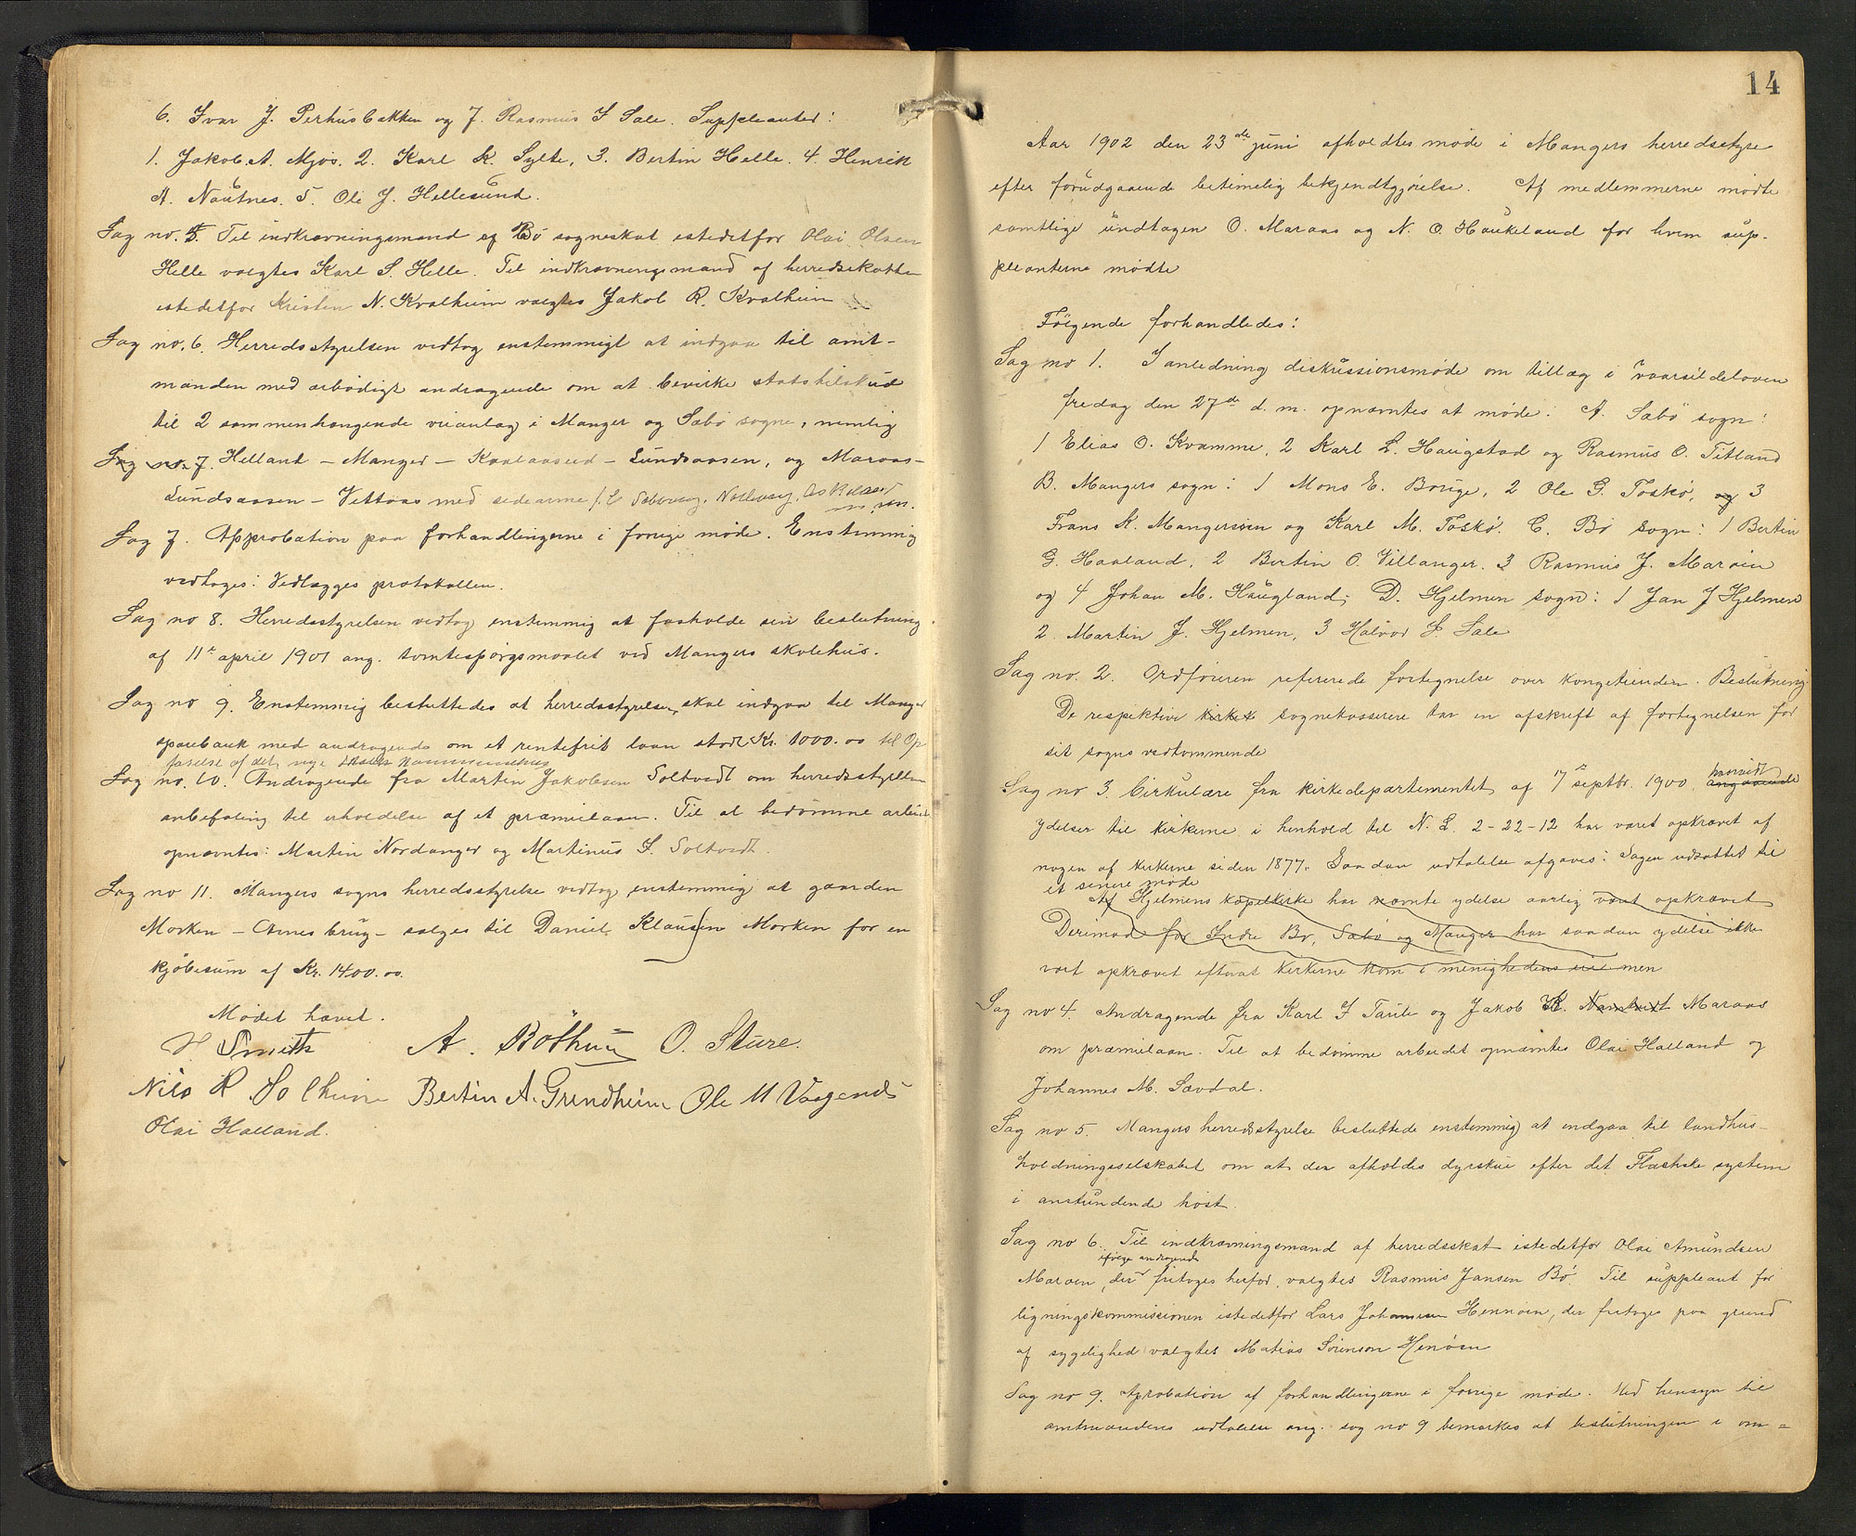 6. Ivar J. Perhusbakken og 7. Rasmus I Sale. Suppleanter:
1. Jakob A. Mjøs. 2. Karl K. Sylte, 3. Bertin Helle. 4. Henrik
A. Nautnes. 5. Ole J. Hellesund.
Sag no. 5. Til indkrævningsmand af Bø sogneskat istedetfor Olai Olsen
Helle valgtes Karl S. Helle. Til indkrævningsmand af herredsskatten
istedetfor Kristen N. Kvalheim valgtes Jakob R. Kvalheim
Sag no. 6. Herredsstyrelsen vedtog enstemmigt at indgaa til amt-
manden med ærbødigt andragende om at bevirke statstilskud
til 2 sammenhængende veianlæg i Manger og Sæbø sogne, nemlig
Sag no. 7. Helland – Manger – Kvalaaseid – Lundsaasen, og Maraas –
Lundsaasen – Vettaas med sidearme
Sag 7. Approbation paa forhandlingerne i forrige møde. Enstemmig
vedtoges: Vedlægges protokollen.
Sag no 8. Herredsstyrelsen vedtog enstemmig at fastholde sin beslutning
af 11te april 1901 ang. tomtespørgsmaalet ved Mangers skolehus.
Sag no 9. Enstemmig besluttedes at herredsstyrelsen skal indgaa til Manger
sparebank med andragende om et rentefrit laan stort Kr. 1000.00 til Op
førelse af det nye
Sag no. 10. Andragende fra Martin Jakobsen Soltvedt om herredsstyrelsen
anbefaling til erholdelse af et præmielaan. Til at bedømme arbeidet
opnævntes: Martin Nordanger og Martinus S. Soltvedt.
Sag no 11. Mangers sogns herredsstyrelse vedtog enstemmig at gaarden
Morken – Arnes brug – sælges til Daniel Klausen Morken for en
kjøbesum af Kr. 1400.00.
Mødet hævet.
H Smith A. Bøthun O. Sture.
Nils R Solheim Bertin A. Grendheim Ole M Vaagenes
Olai Halland.
14
Aar 1902 den 23de juni afholdtes møde i Mangers herredsstyre
efter forudgaaende betimelig bekjendtgjørelse. Af medlemmerne mødte
samtlige undtagen O. Maraas og N. O. Haukeland for hvem sup-
pleanterne mødte
Følgende forhandledes:
Sag no 1. I anledning diskussionsmøde om tillæg i vaarsildeloven
fredag den 27de d. m. opnævntes at møde: A. Sæbø sogn:
1 Elias O. Kvamme, 2 Karl L. Haugstad og Rasmus O. Titland
B. Mangers sogn: 1 Mons E. Borige, 2 Ole G. Toskø, og 3
Frans K. Mangersnes og Karl M. Toskø. C. Bø sogn: 1 Bertin
G. Haaland, 2 Bertin O. Villanger. 3 Rasmus J. Marøen
og 4 Johan M. Haugland; D. Hjelmen sogn: 1 Jan J Hjelmen
2. Martin J. Hjelmen, 3 Halvor J. Sale
Sag no. 2. Ordføreren refererede fortegnelse over kongetienden. Beslutning
De respektive kirkek sognekasserere tar en afskrift af fortegnelsen for
sit sogns vedkommende
Sag no 3. Cirkulære fra kirkedepartementet af 17de septbr. 1900 hvorvidt angaaende
ydelser til kirkerne i henhold til N. L. 2-22-12 har været opkrævet af
nogen af kirkerne siden 1877. Saadan udtalelse afgaves: Sagen udsættes til
et senere møde
Af Hjelmens kapelkirke har nævnte ydelse aarlig vært opkrævet
Derimod for Indre Bø, Sæbø og Manger har saadan ydelse ikke
vært opkrævet efterat kirkerne kom i menighedens eie men
Sag no 4. Andragende fra Karl I Taule og Jakob K. Maraas
om præmielaan. Til at bedømme arbeidet opnævntes Olai Halland og
Johannes M. Sævdal.
Sag no 5. Mangers herredsstyrelse besluttede enstemmig at indgaa til landhus-
holdningsselskabet om at der afholdes dyrskue efter det Flatneske system
i anstundende høst.
Sag no 6. Til indkrævningsmand af herredsskat istedetfor Olai Amundsen
ifølge andragende
Marøen, der fritoges herfor, valgtes Rasmus Jansen Bø. Til suppleant for
ligningskommissionen istedetfor Lars Johannesen Hennøen, der fritoges paa grund
af sygelighed valgtes Matias Sørenson Henøen
Sag no 9. Aprobation af forhandlingerne i forrige møde. Med hensyn til
amtmandens udtalelse ang. sag no 9 bemærkes at beslutningen i om=